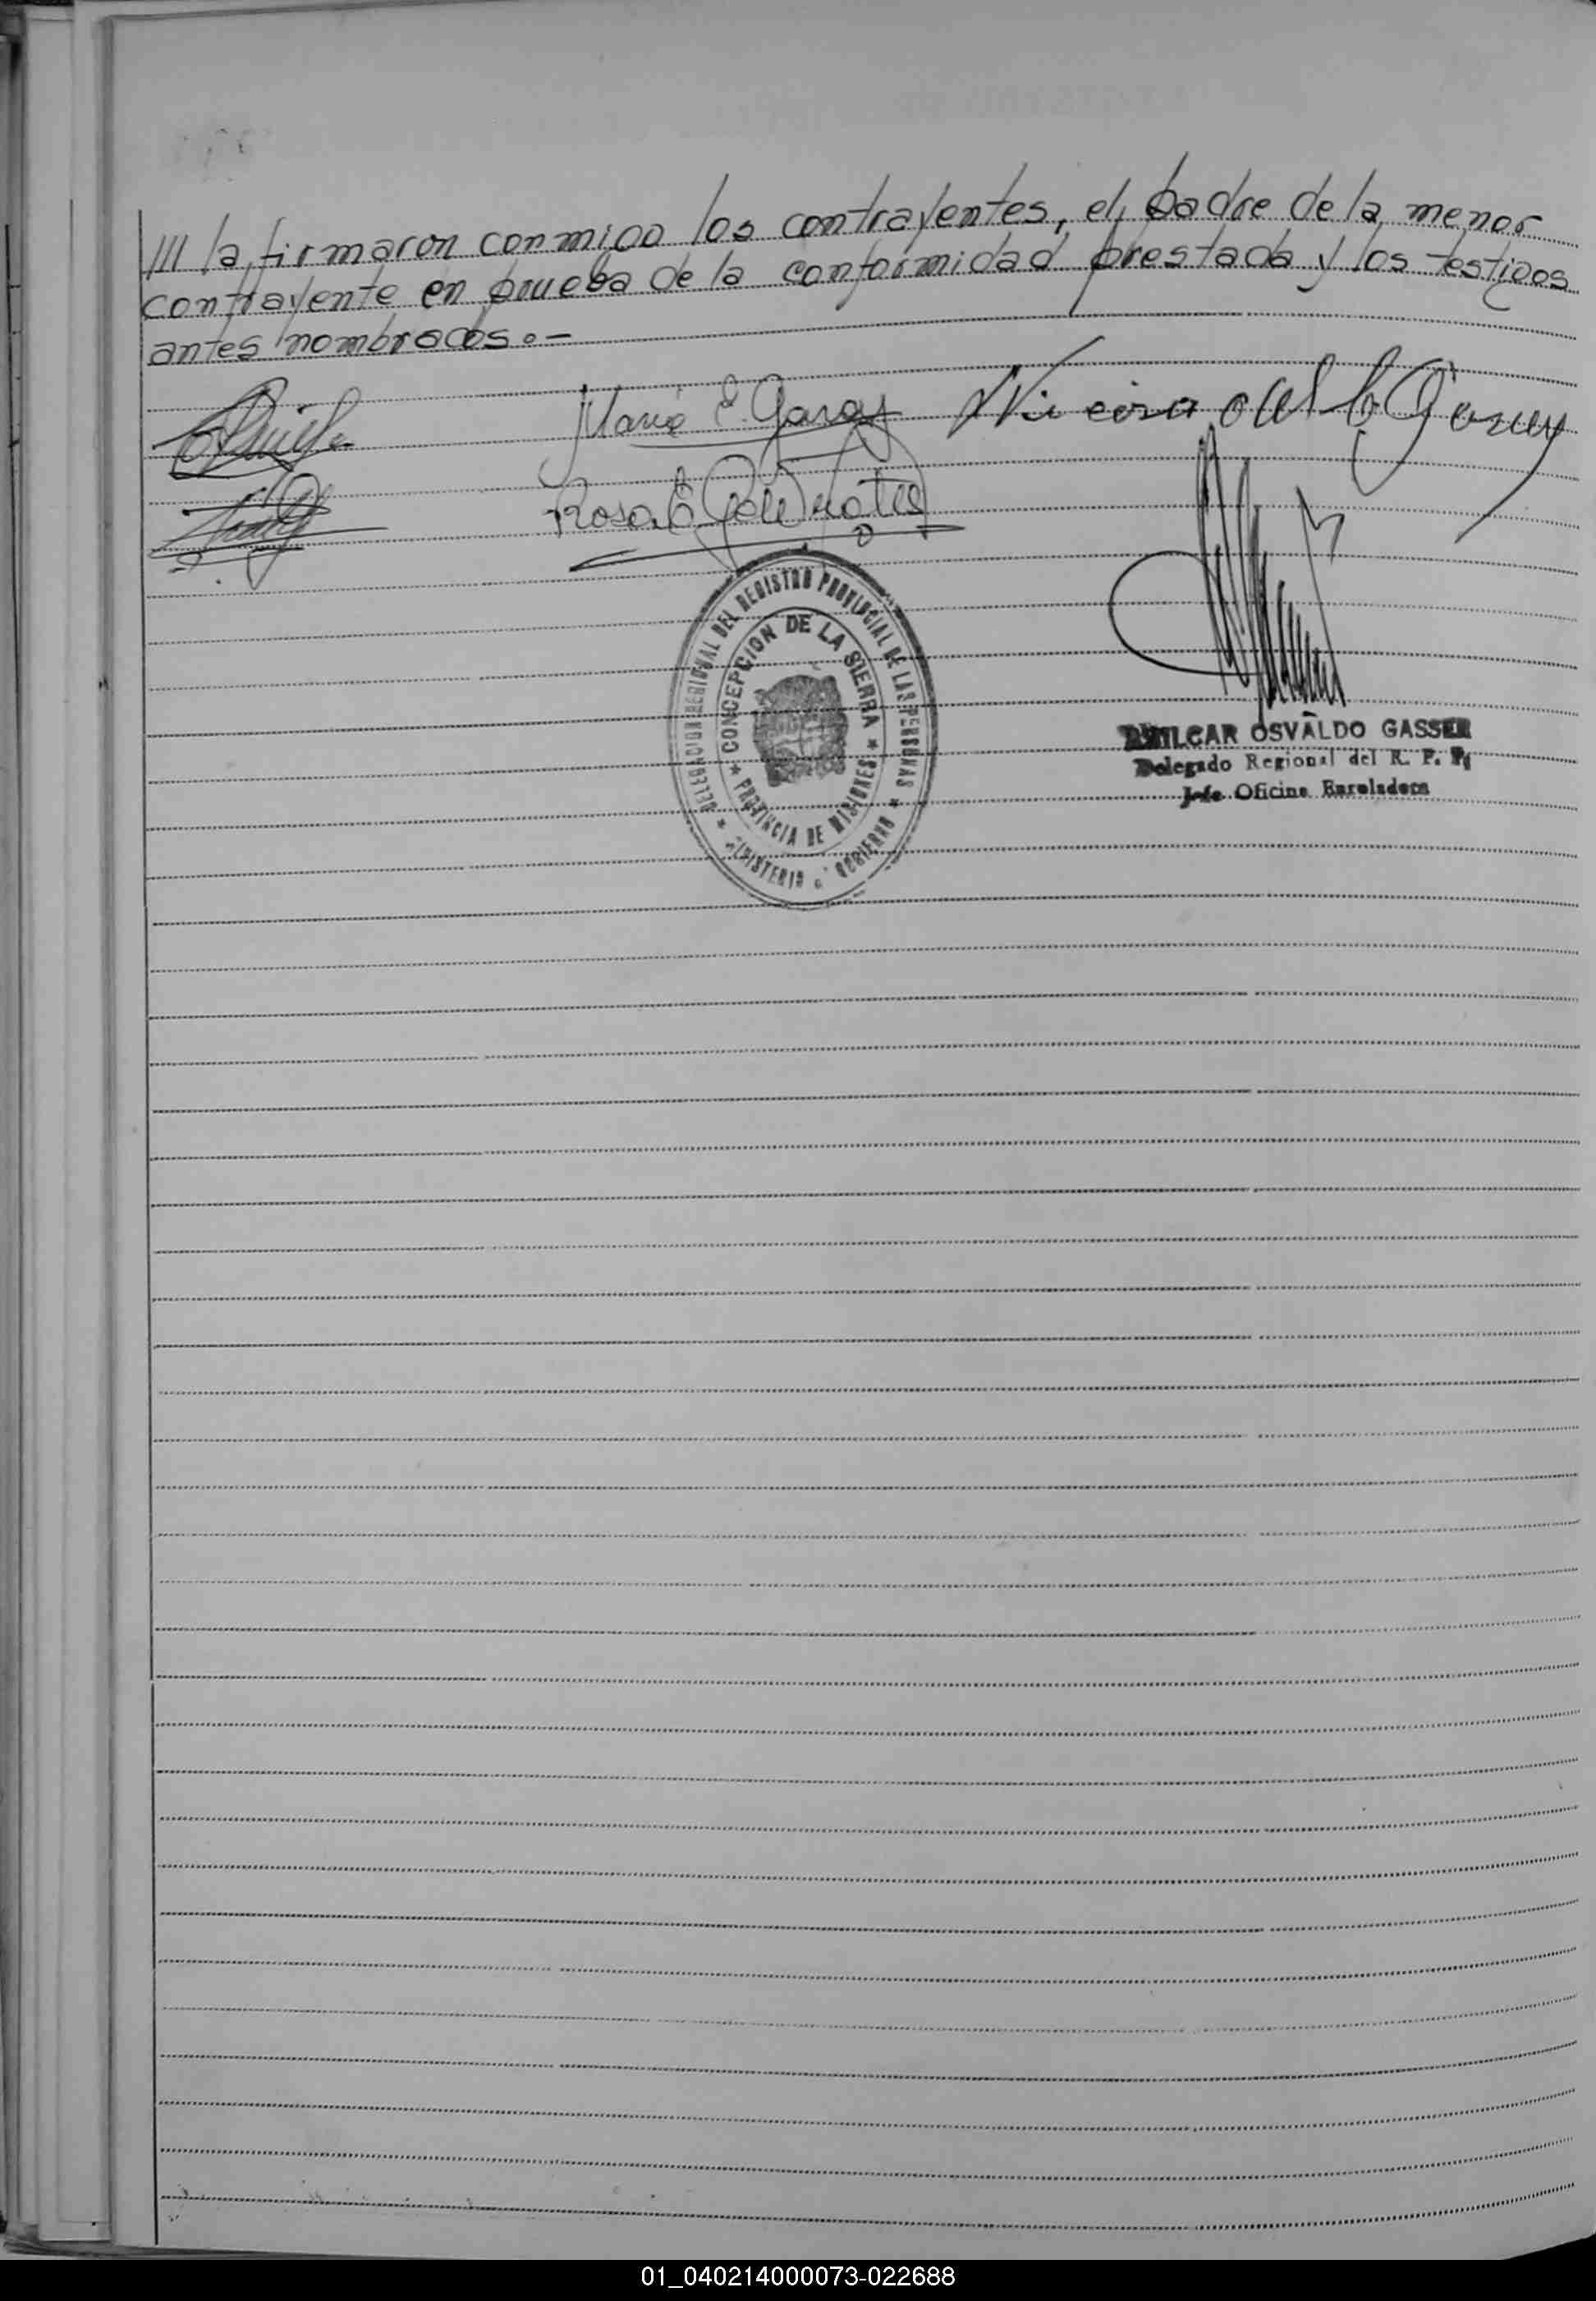 /// la firmaron conmigo los contrayentes, el padre de la menor
contrayente en prueba de la conformidad prestada y los testigos
antes nombrados.-
Maria E. Garay
Rosa E.
DELEGACION REGIONAL DEL REGISTRO PROVINCIAL DE LAS PERSONAS
* MINISTERIO GOBIERNO *
CONCEPCION DE LA SIERRA
* PROVINCIA DE MISIONES *
AMILCAR OSVALDO GASSER
Delegado Regional del R. P. P.
Jefe Oficina Enroladora
01_040214000073-022688